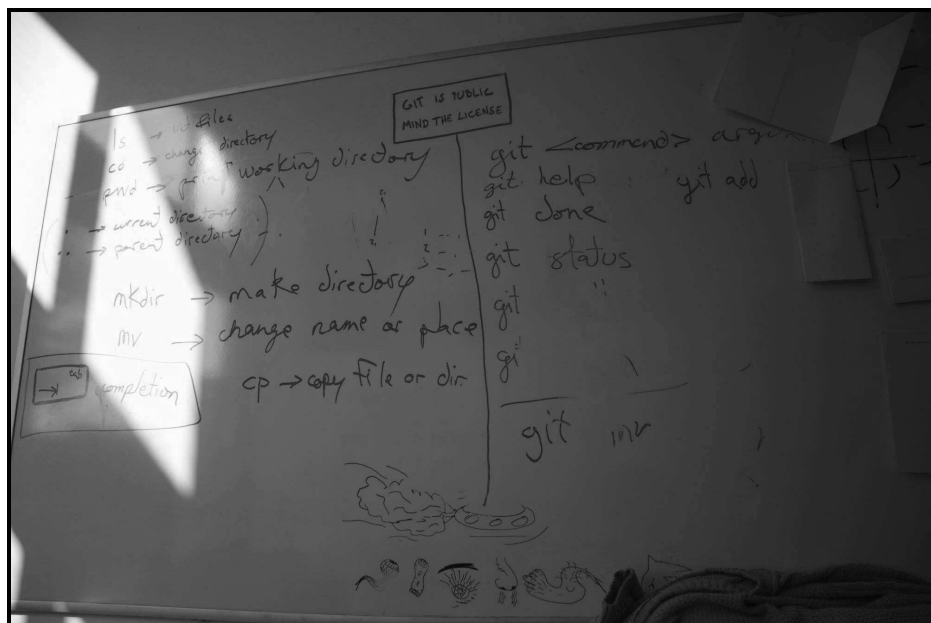 GIT IS PUBLIC
MIND THE LICENSE
ls → files
cd → change directory
pwd → print working directory
. → current directory
.. → parent directory
mkdir → make directory
mv → change name or place
tab completion
cp → copy file or dir
git <command>
git help git add
git clone
git status
git "
git
git mv